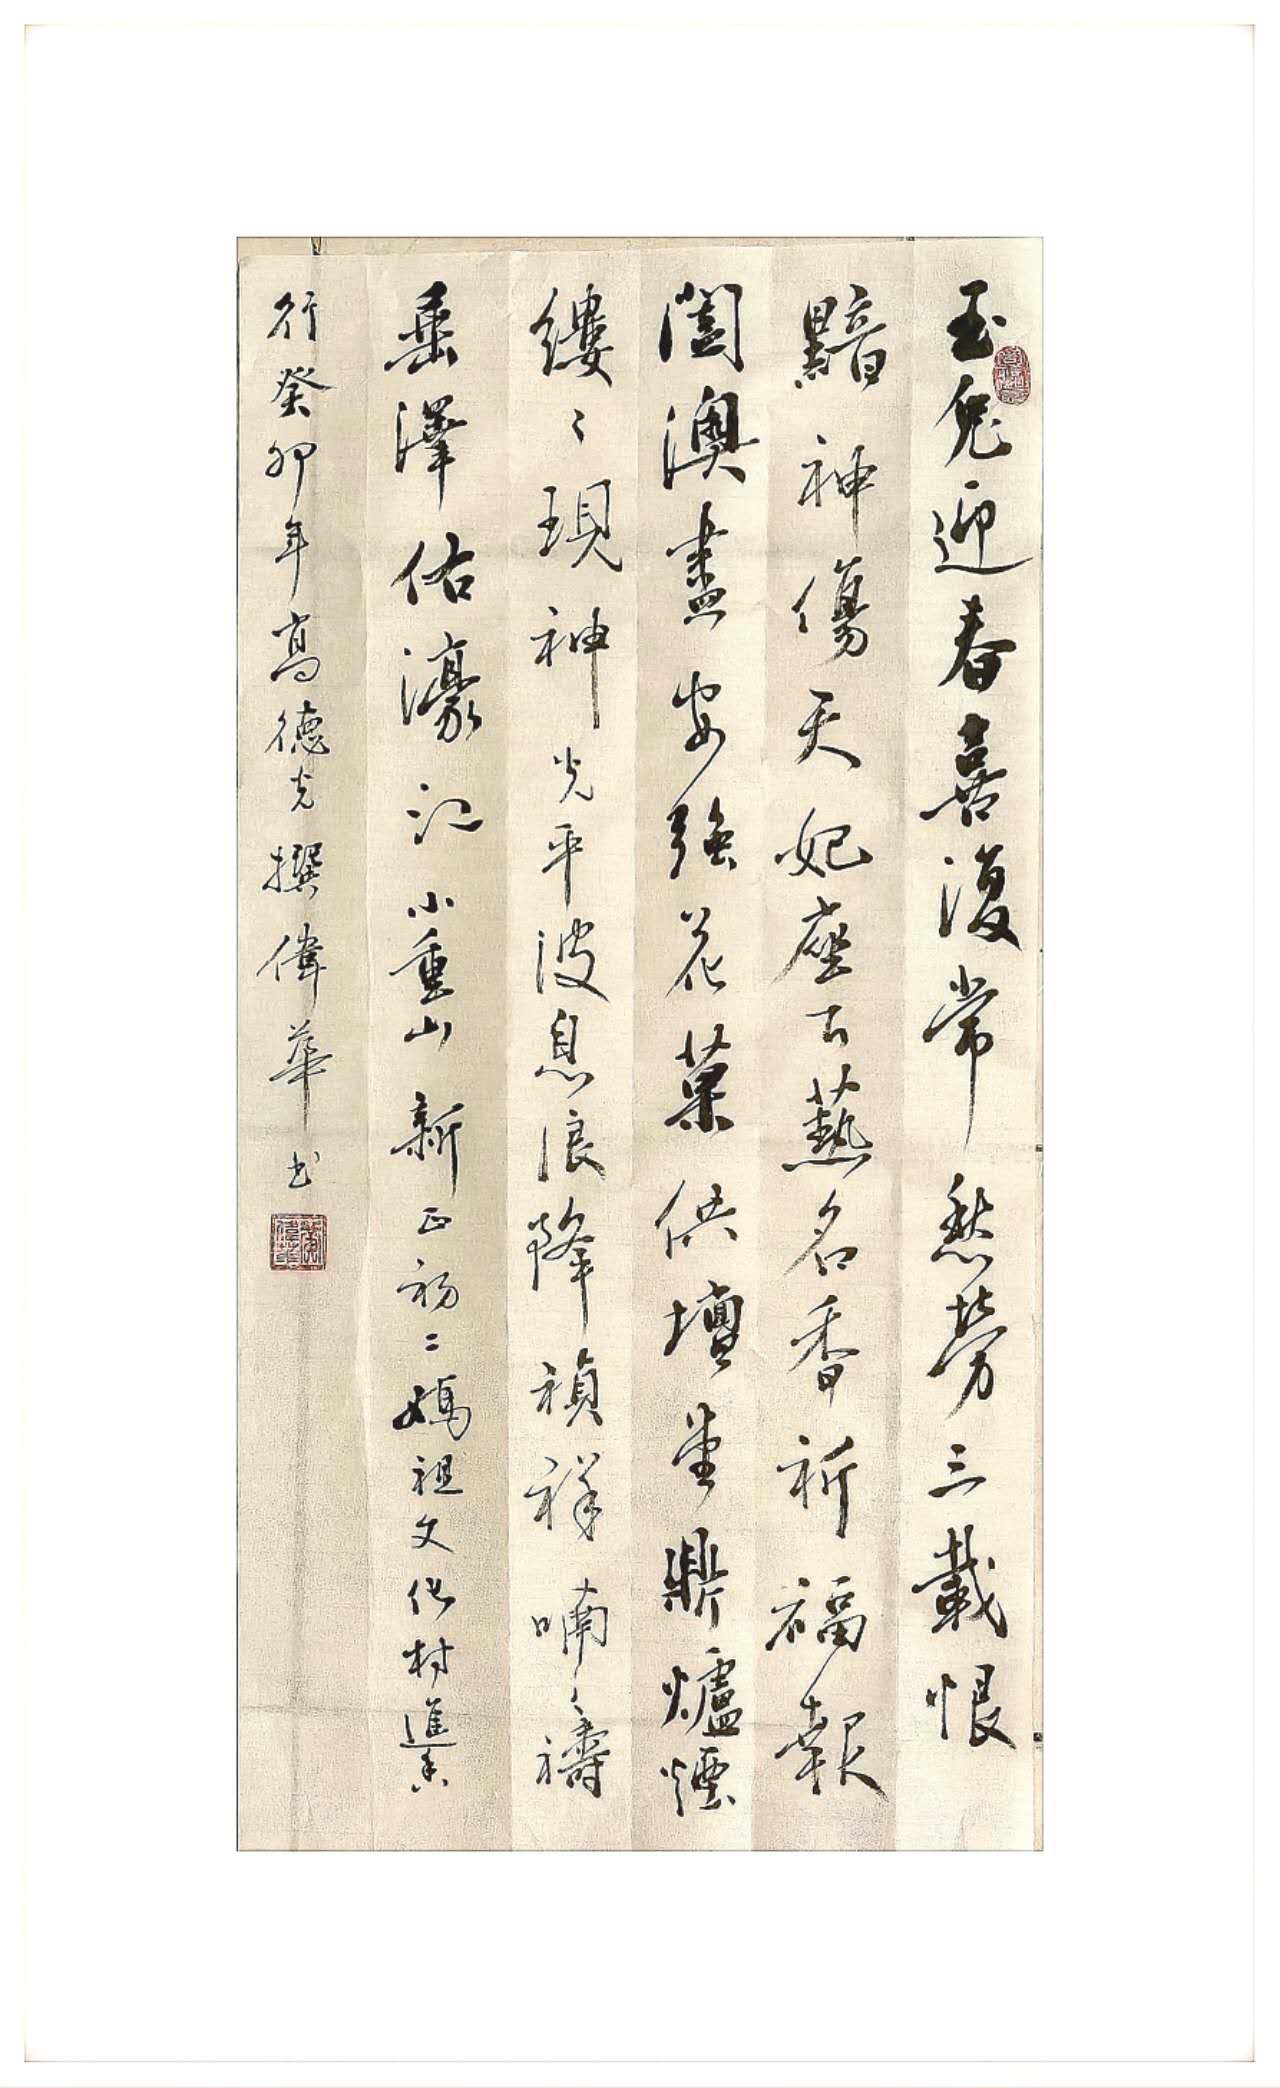 玉兔迎春喜復常愁勞三載恨
黯神傷天妃座下爇名香祈福報
闔澳盡安強花菓供壇堂鼎爐煙
縷〻現神光平波息浪降禎祥喃〻禱
垂澤佑濠江小重山新正初二媽祖文化村進香
行癸卯年高德光撰偉華书